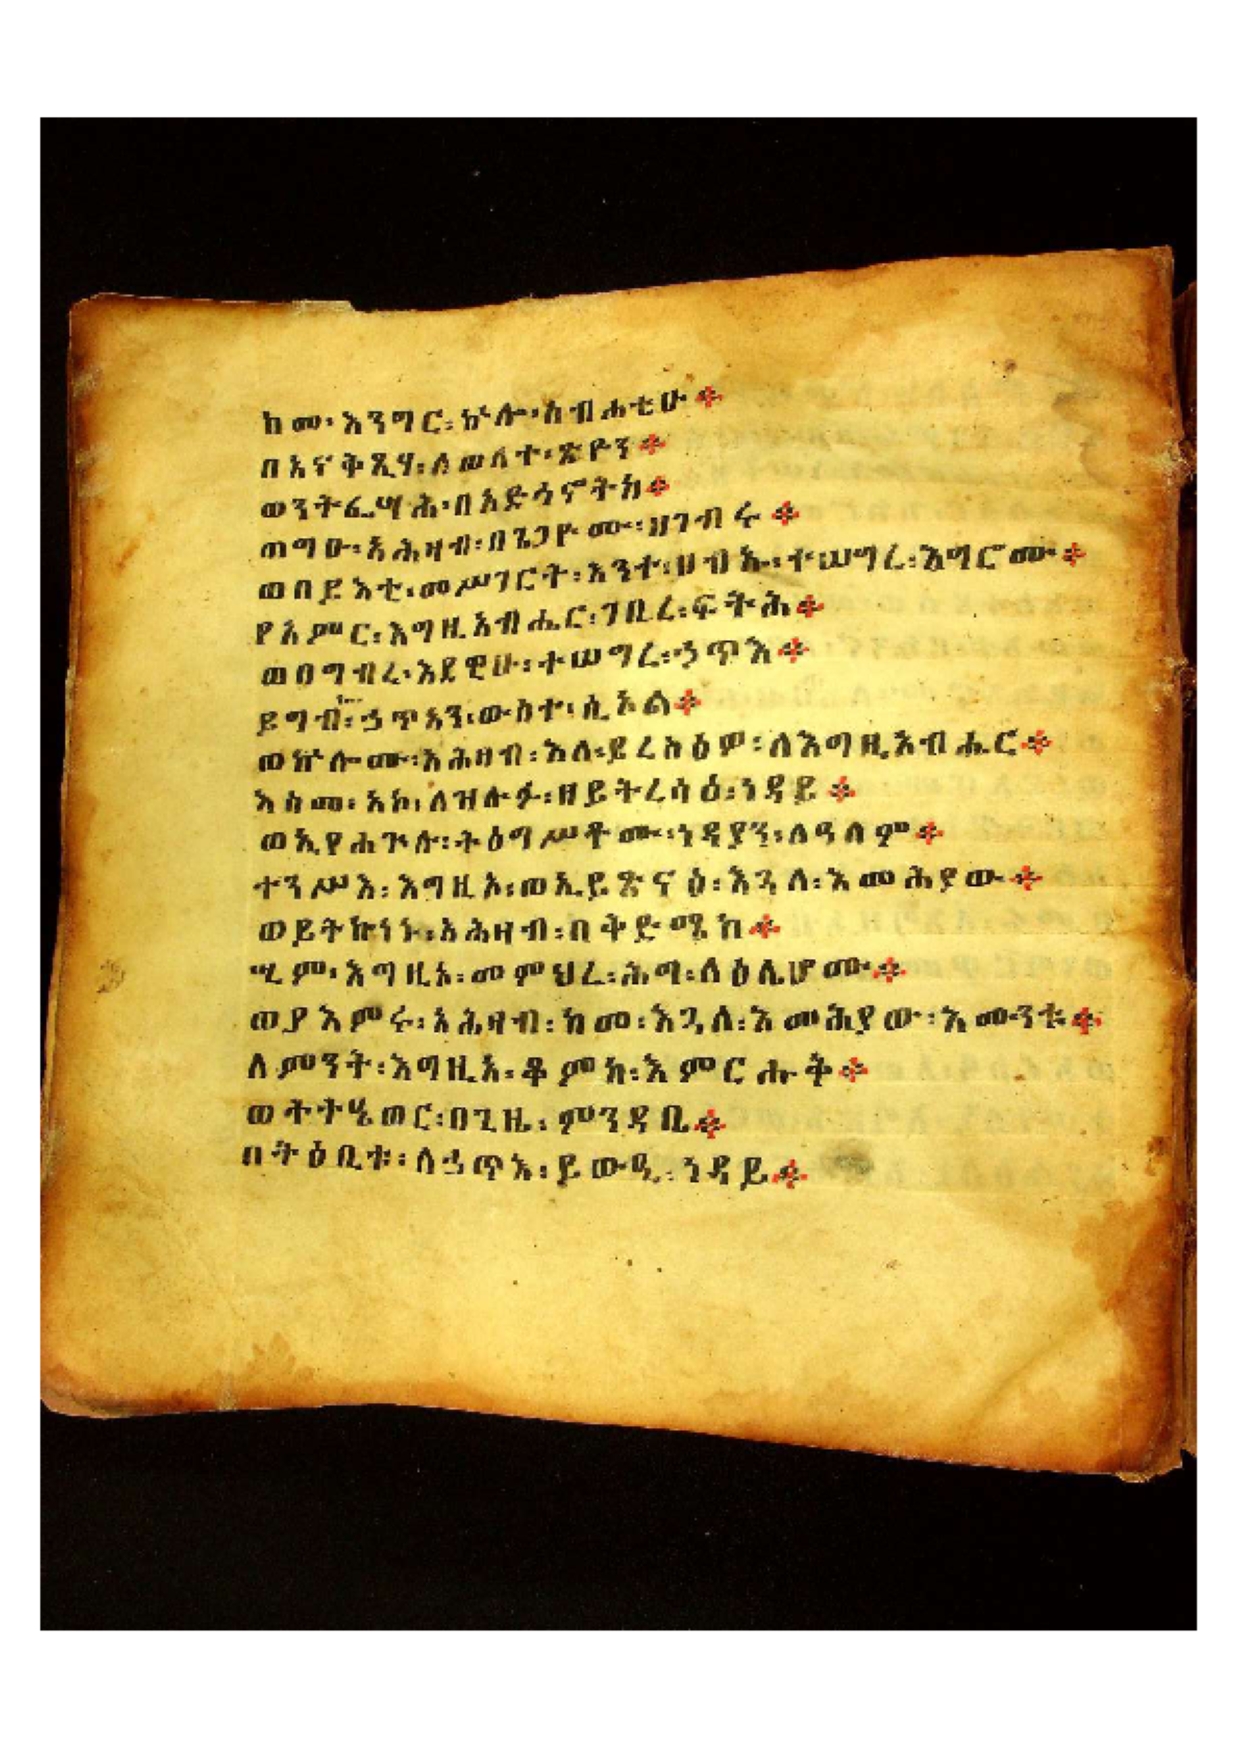 ከመ፡እንግር፡ኵሎ፡ስብሐቲሁ፨
በአናቅጺሃ፡ለወለተ፡ጽዮን፨
ወንትፌሣሕ፡በአድኅኖትከ፨
ጠግዑ፡አሕዛብ፡በጌጋዮሙ፡ዘገብሩ፨
ወበይእቲ፡መሥገርት፡እንተ፡ኀብኡ፡ተሠግረ፡እግሮሙ፨
የአምር፡እግዚአብሔር፡ገቢረ፡ፍትሕ፨
ወበግብረ፡እደዊሁ፡ተሠግረ፡ኃጥእ፨
ይግብኡ፡ኃጥአን፡ውስተ፡ሲኦል፨
ወኵሎሙ፡አሕዛብ፡እለ፡ይረስዕዎ፡ለእግዚአብሔር፨
እስመ፡አኮ፡ለዝሉፉ፡ዘይትረሳዕ፡ነዳይ፨
ወኢየሐጕሉ፡ትዕግሥቶሙ፡ነዳያን፡ለዓለም፨
ተንሥእ፡እግዚኦ፡ወኢይጽናዕ፡እጓለ፡እመሕያው፨
ወይትኰነኑ፡አሕዛብ፡በቅድሜከ፨
ሢም፡እግዚእ፡መምህረ፡ሕግ፡ለዕሌሆሙ፨
ወያእምሩ፡አሕዛብ፡ከመ፡እጓለ፡እመሕያው፡እመንቱ፨
ለምንት፡እግዚእ፡ቆምከ፡እምርሑቅ፨
ወትትሄወር፡በጊዜ፡ምንዳቤ፨
በትዕቢቱ፡ለኃጥእ፡ይውዒ፡ነዳይ፨